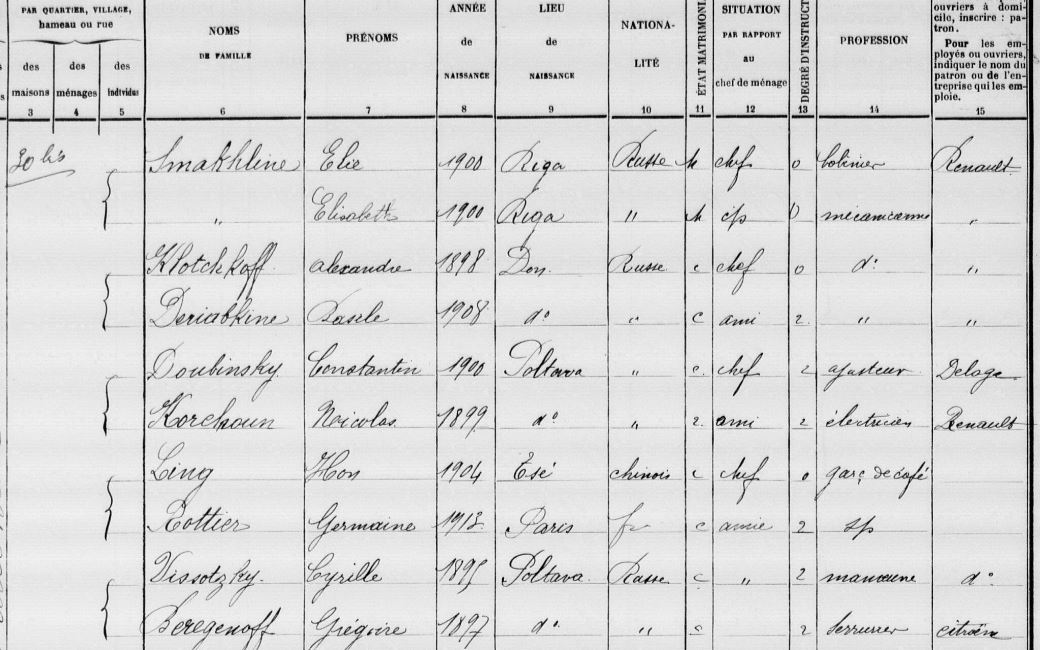 PAR QUARTIER, VILLAGE,
hameau ou rue
des maisons
des ménages
des individus
NOMS
DE FAMILLE
PRÉNOMS
ANNÉE
de
NAISSANCE
LIEU
de
NAISSANCE
NATIONA-
LITÉ
ÉTAT MATRIMONI
SITUATION
PAR RAPPORT
au
chef de ménage
DEGRÉ D'INSTRUCT
PROFESSION
ouvriers à domi-
cile, inscrire : pa-
tron.
Pour les em-
ployés ou ouvriers,
indiquer le nom du
patron ou de l'en-
treprise qui les em-
ploie.
3 4 5 6 7 8 9 10 11 12 13 14 15
30 bis Smakhline Elie 1900 Riga Russe M chef 0 bobinier Renault
" Elisabeth 1900 Riga " M 0 mecanicienne "
Klotchkoff alexandre 1898 Don Russe c chef 0 d° "
Deriabkine Basile 1908 d° " c ami 2 " "
Doubinsky Constantin 1900 Poltava " c chef 2 ajusteur Delage
Korchoun Nicolas 1899 d° " 2 ami 2 électricien Renault
Ling Hon 1904 Esé chinois c chef 0 garç de café
Rottier Germaine 1913 Paris fr c amie 2 sp
Vissotzky Cyrille 1895 Poltava Russe c " 2 d°
Beregenoff Grégoire 1897 d° " c 2 serrurier citroën